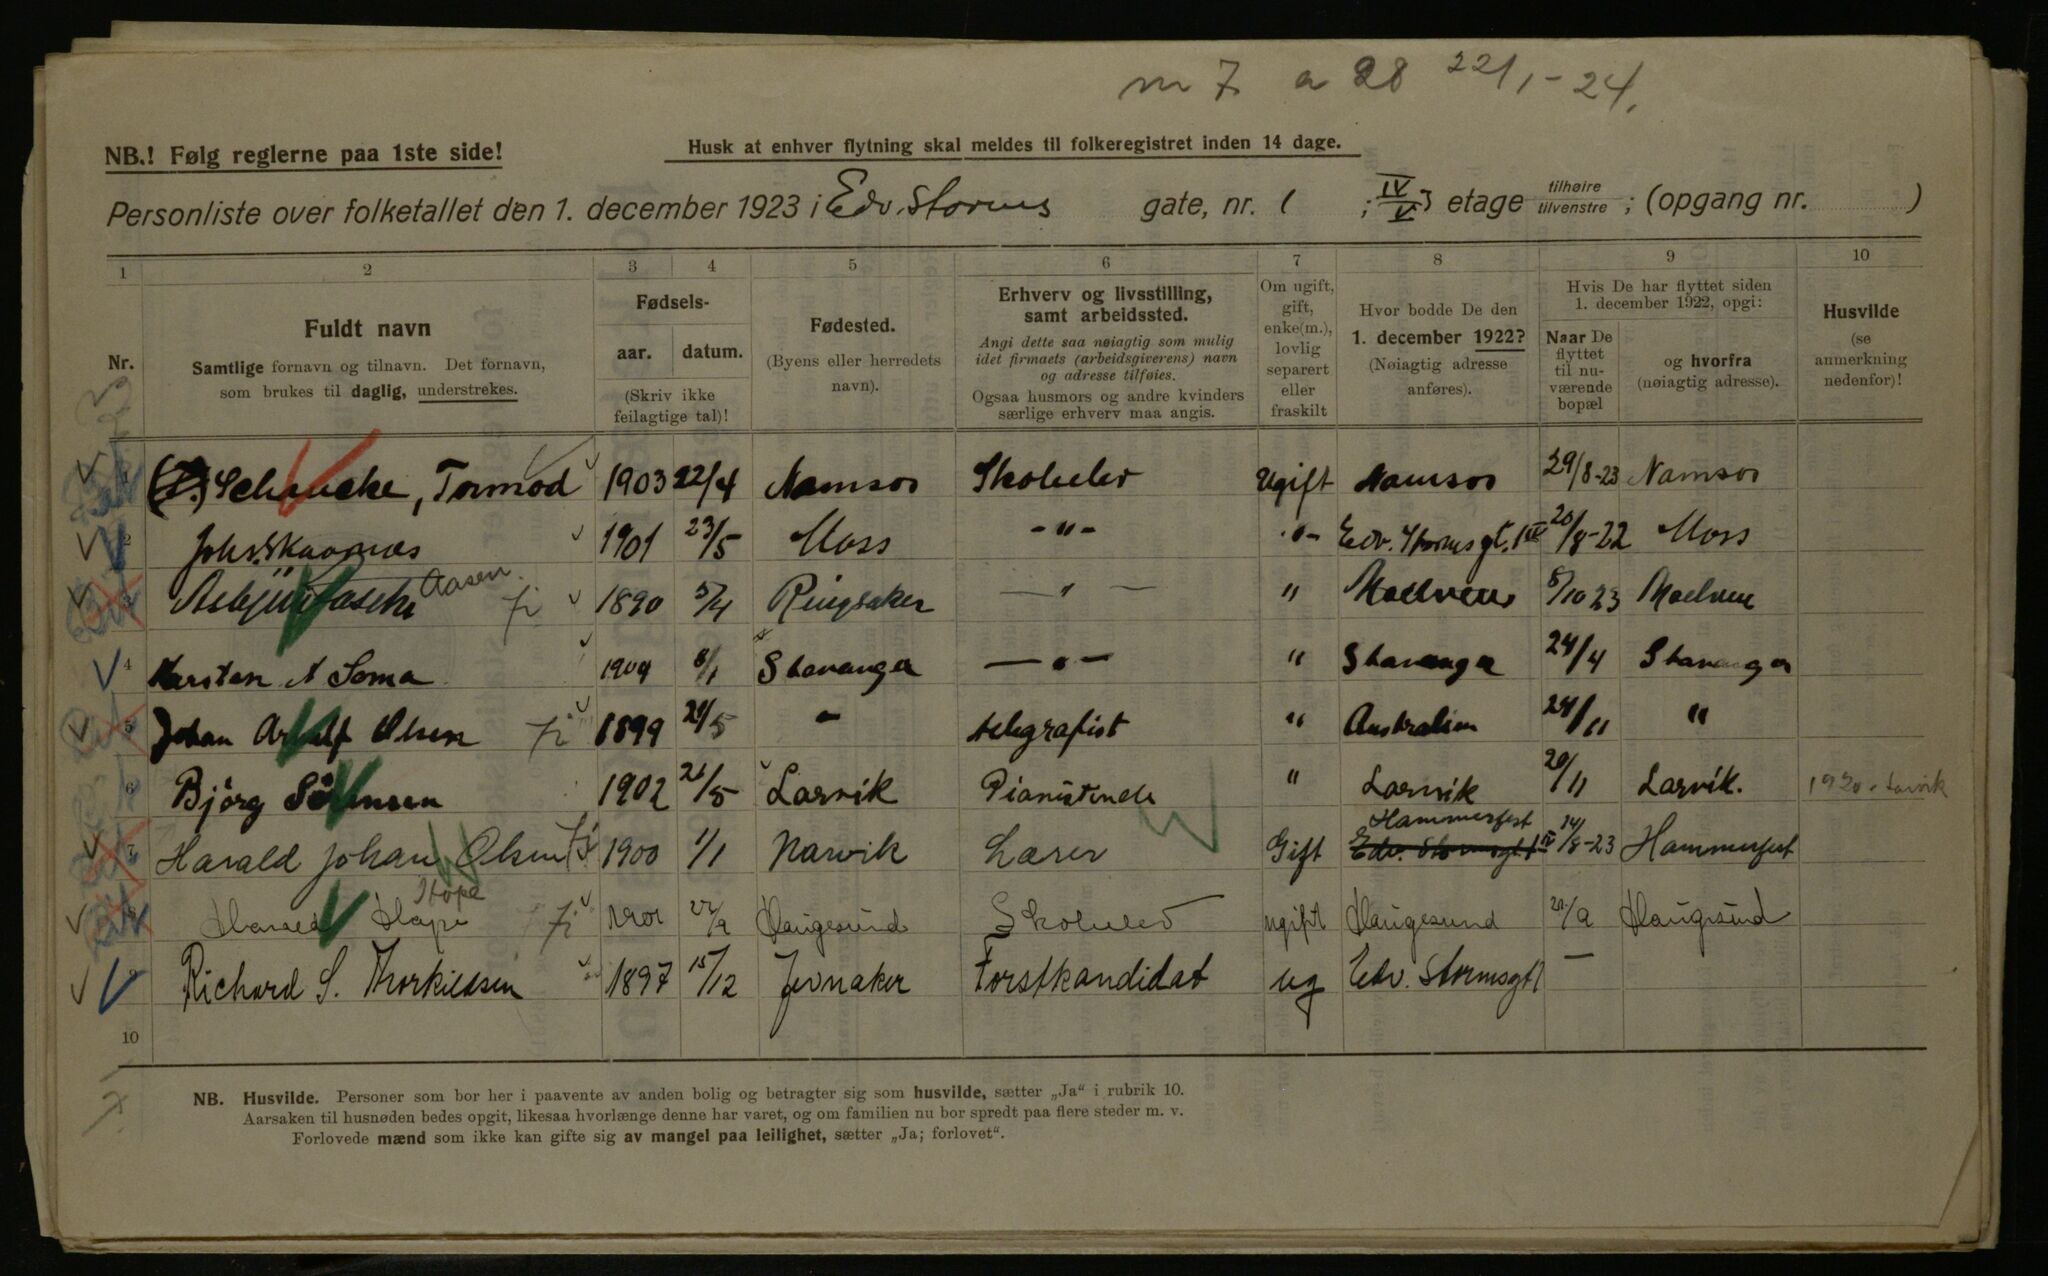 m 7 a 28 22/1-24.
NB.! Følg reglerne paa 1ste side!
Husk at enhver flytning skal meldes til folkeregistret inden 14 dage.
Personliste over folketallet den 1. december 1923 i Edv. Storms gate, nr. 1 ; IV V etage tilhøire tilvenstre ; (opgang nr. )
1 2 3 4 5 6 7 8 9 10
Nr.
Fuldt navn
Samtlige fornavn og tilnavn. Det fornavn,
som brukes til daglig, understrekes.
Fødsels-
aar. datum.
(Skriv ikke
feilagtige tal)!
Fødested.
(Byens eller herredets
navn).
Erhverv og livsstilling,
samt arbeidssted.
Angi dette saa nøiagtig som mulig
idet firmaets (arbeidsgiverens) navn
og adresse tilføies.
Ogsaa husmors og andre kvinders
særlige erhverv maa angis.
Om ugift,
gift,
enke(m.),
lovlig
separert
eller
fraskilt
Hvor bodde De den
1. december 1922?
(Nøiagtig adresse
anføres).
Hvis De har flyttet siden
1. december 1922, opgi:
Naar De
flyttet
til nu-
værende
bopæl
og hvorfra
(nøiagtig adresse).
Husvilde
(se
anmerkning
nedenfor)!
1 Schancke, Tormod 1903 22/4 Namsos Skoleelev Ugift Namsos 29/8-23 Namsos
2 1901 23/5 Moss -"- -"- Edv. Stormsgt. 1 IV 20/8-22 Moss
3 Aasen 1890 5/4 Ringsaker — " — " Moelven 8/10 23 Moelven
4 Karsten A Soma 1904 8/1 Stavanger — " — " Stavanger 24/4 Stavanger
5 Johan Olsen 1899 29/5 " telegrafist " Australien 24/11 "
6 Bjørg Sörensen 1902 21/5 Larvik Pianistinde " Larvik 20/11 Larvik. 1920. Larvik
7 Harald Johan Olsen 1900 1/1 Narvik Lærer Gift Hammerfest Edv. Stormsgt 1 IV 14/8-23 Hammerfest
8 Hope 1901 22/9 Haugesund Skoleelev ugift Haugesund 20/9 Haugesund
9 Richard S. Thorkildsen 1897 15/12 Jevnaker Forstkandidat ug Edv. Stormsgt 1 —
10
NB. Husvilde. Personer som bor her i paavente av anden bolig og betragter sig som husvilde, sætter „Ja“ i rubrik 10.
Aarsaken til husnøden bedes opgit, likesaa hvorlænge denne har varet, og om familien nu bor spredt paa flere steder m. v.
Forlovede mænd som ikke kan gifte sig av mangel paa leilighet, sætter „Ja; forlovet“.